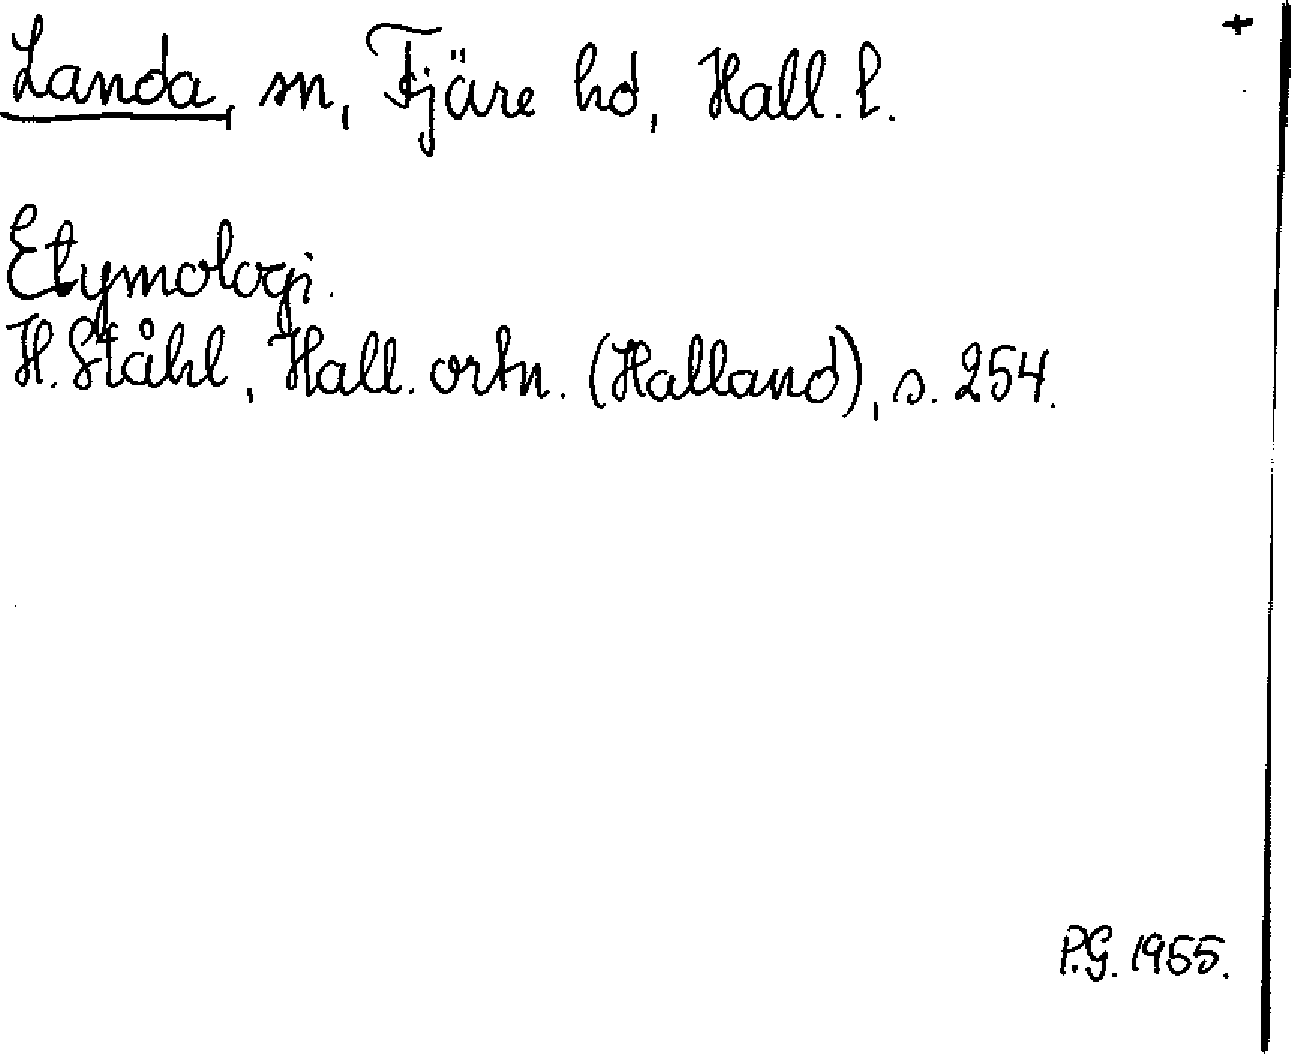 +
Landa, sn, Fjäre hd, Hall. l.
Etymologi.
H. Ståhl, Hall. ortn. (Halland), s. 254.
P.G. 1955.